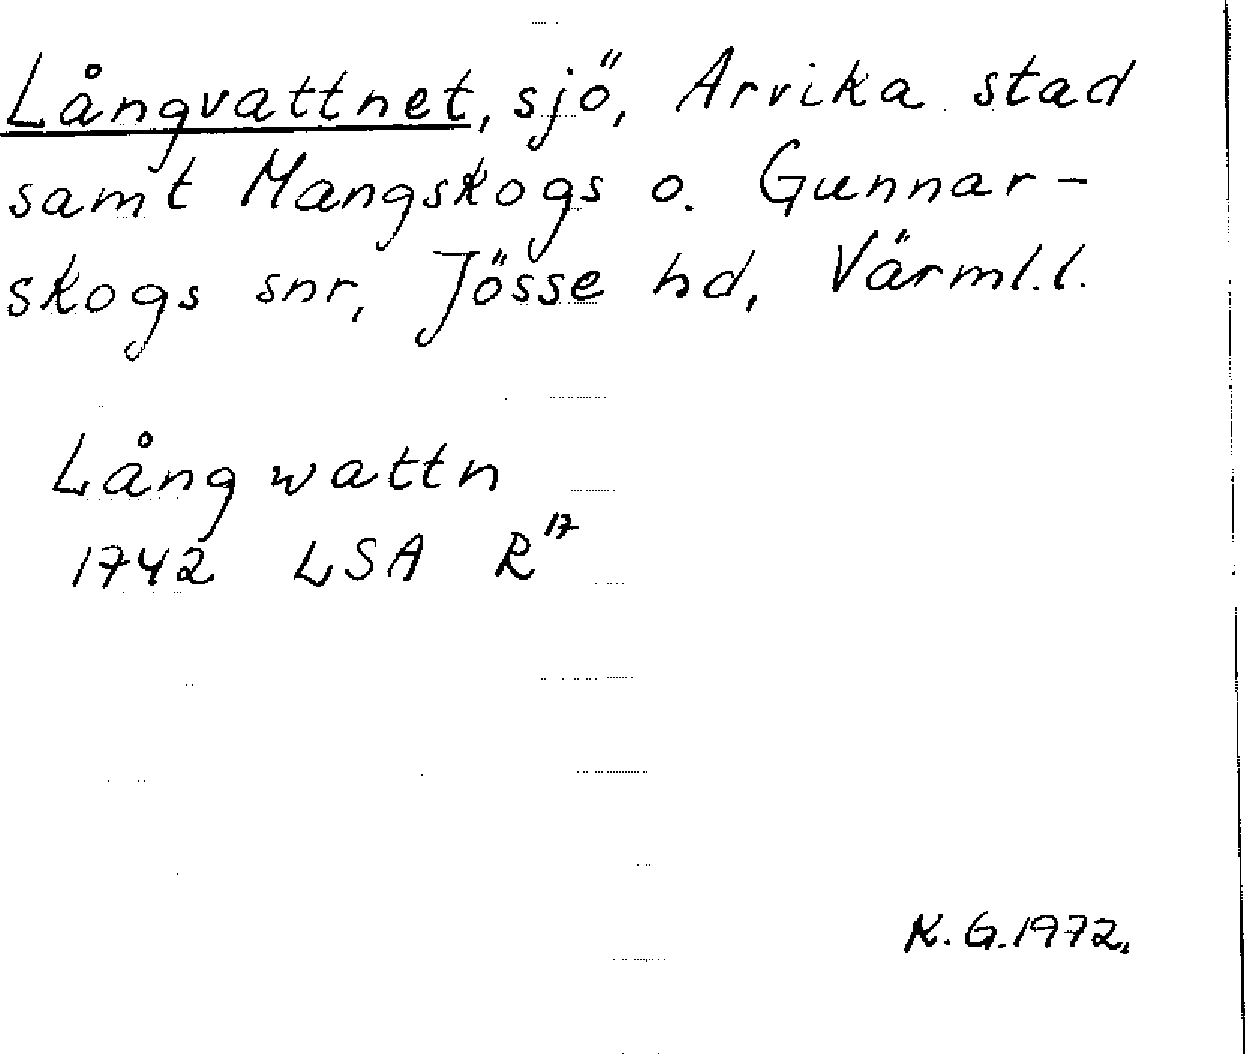 Långvattnet, sjö, Arvika stad
samt Mangskogs o. Gunnar-
skogs snr, Jösse hd, Värml.l.
Långwattn
1742 LSA R¹⁷
K.G.1972.